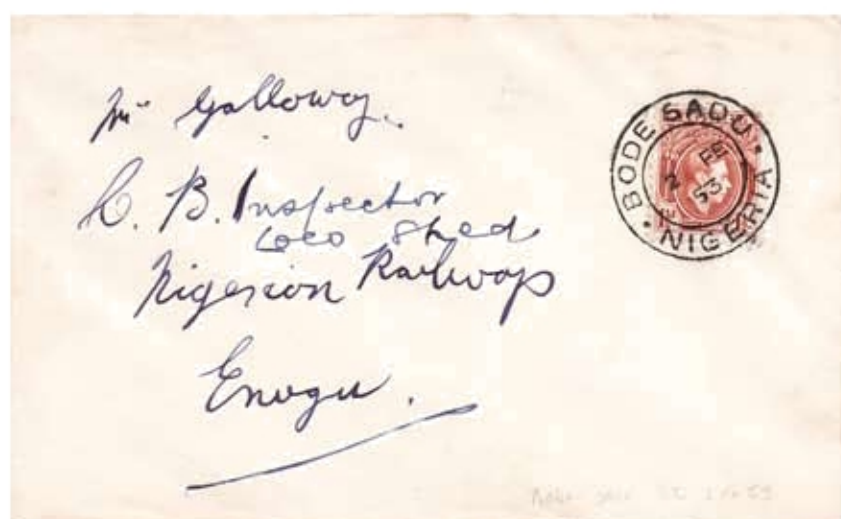 Mr Galloway.
C. B. Inspector
Loco Shed
Nigerian Railways
Enugu.
BODE SADU
2 FE
53
NIGERIA